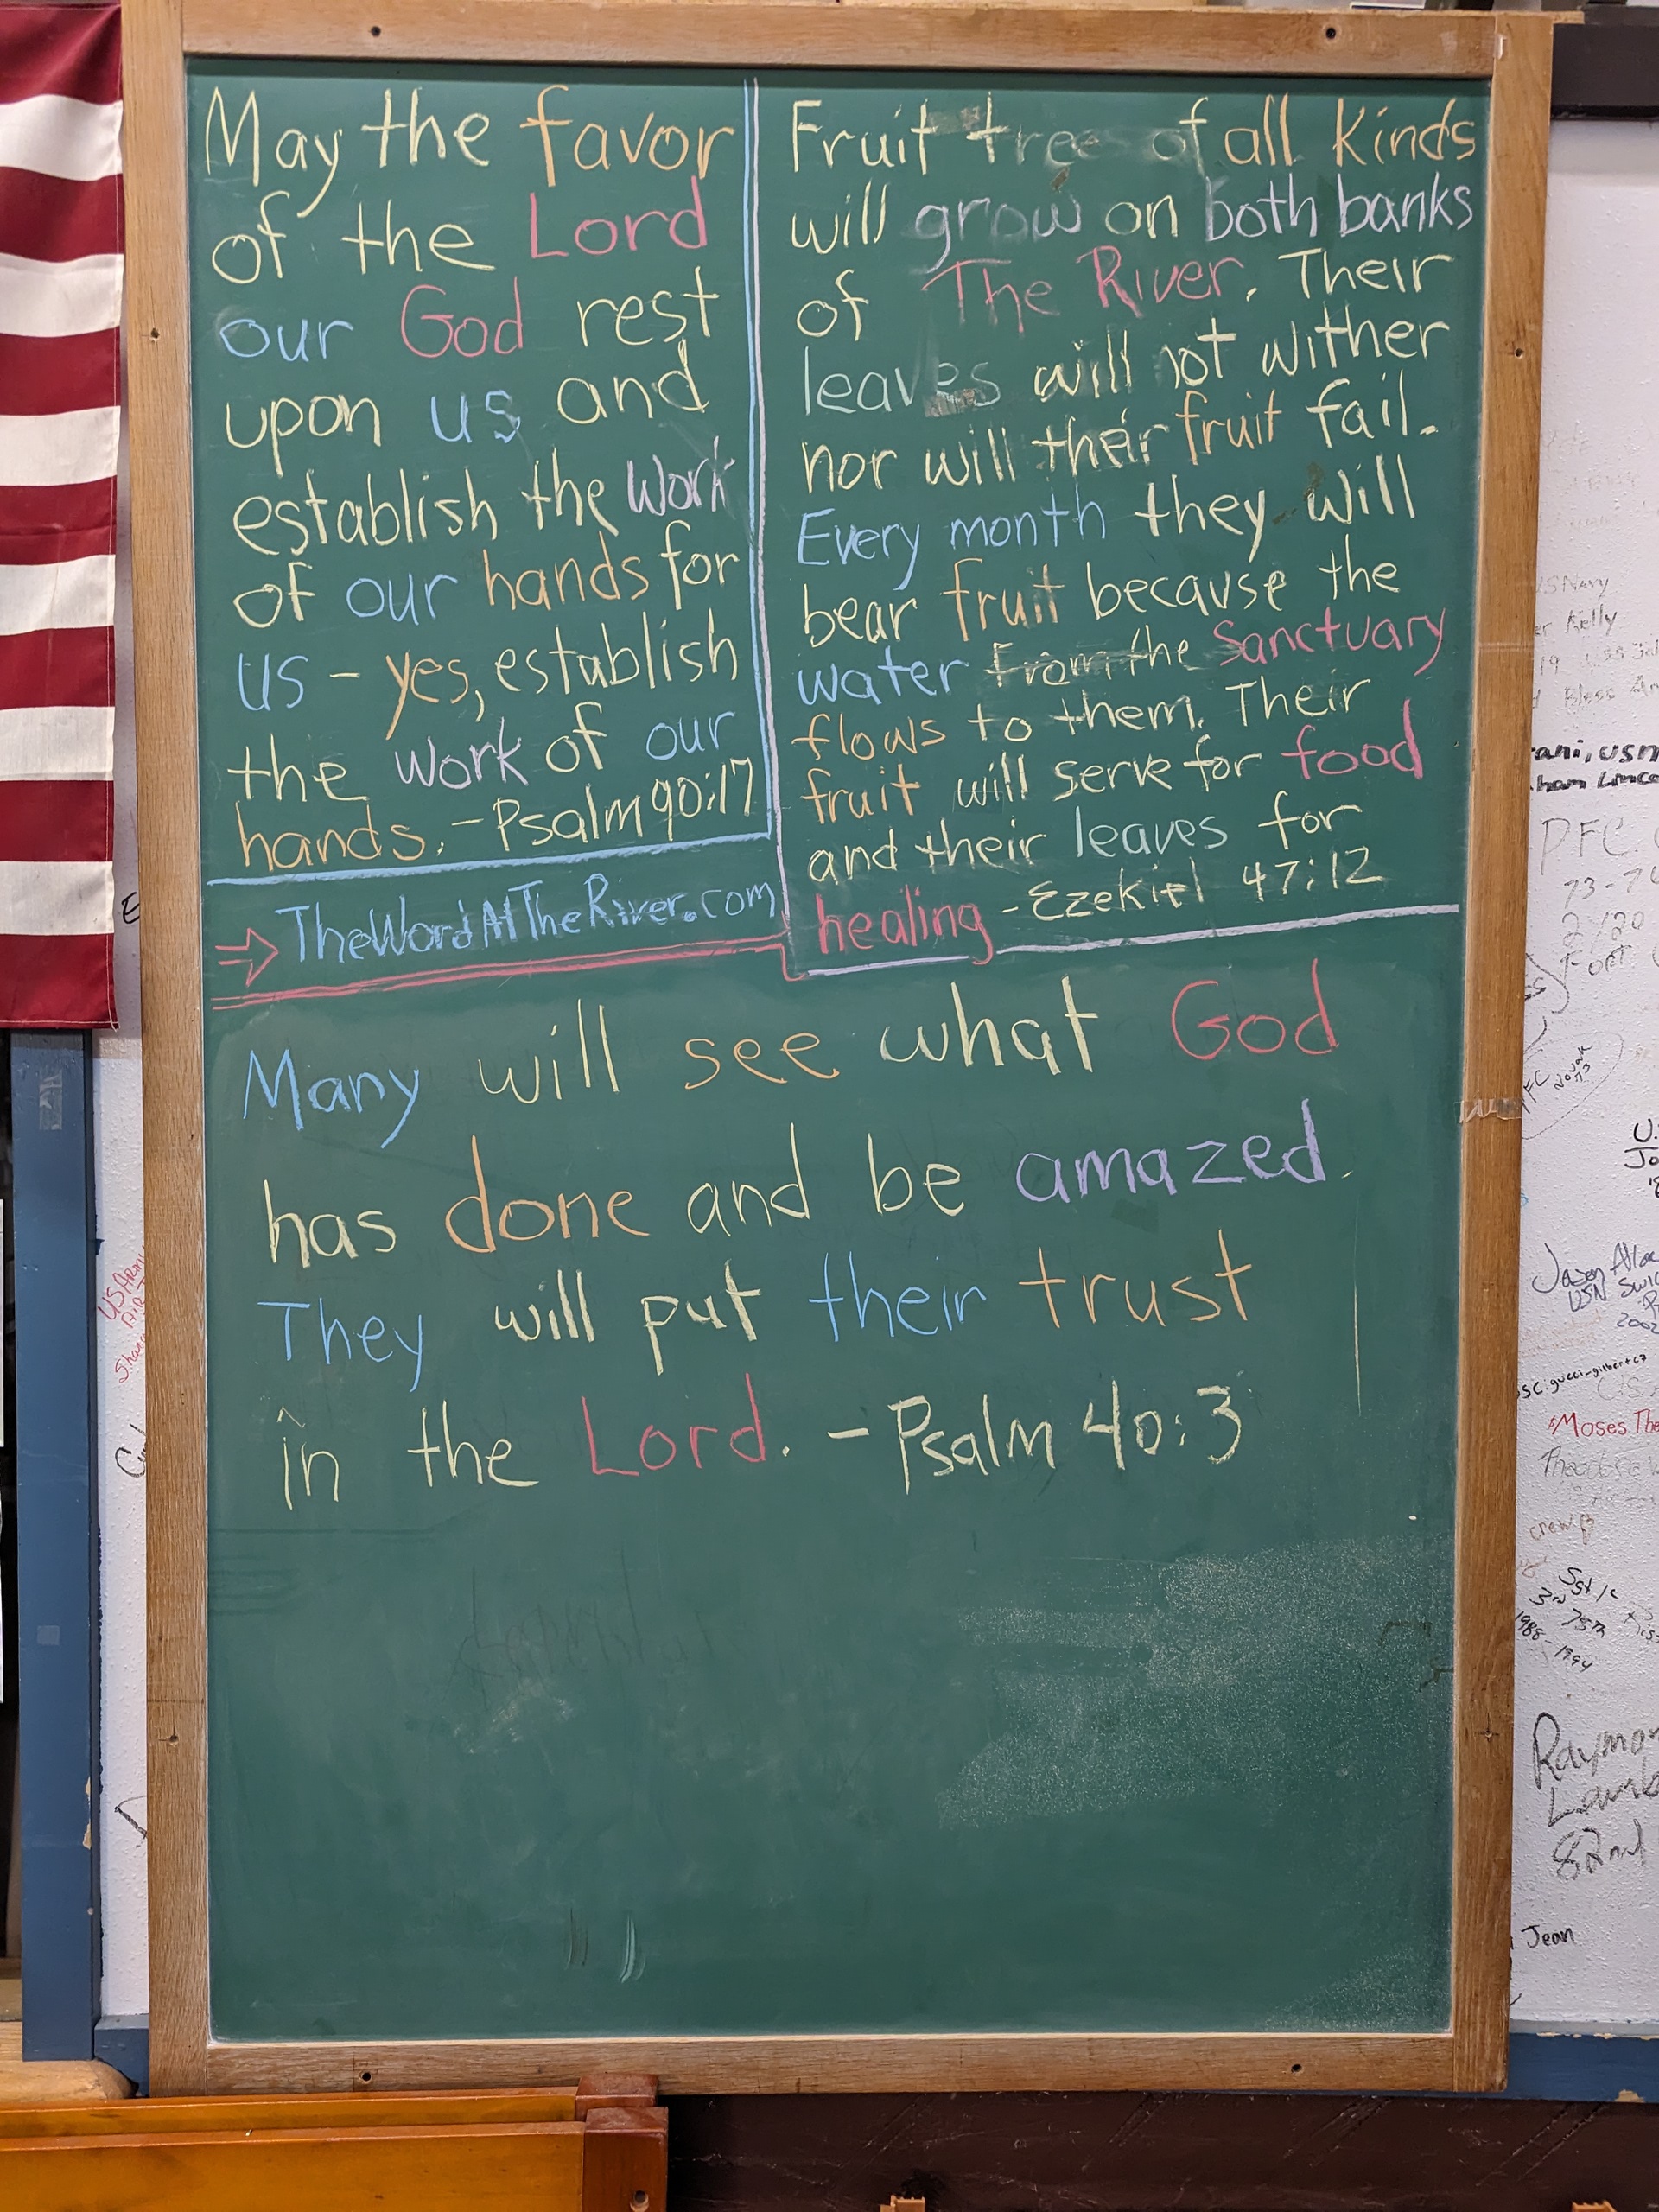 May the favor
of the Lord
our God rest
upon us and
establish the work
of our hands for
us - yes, establish
the work of our
hands. - Psalm 90:17
TheWordAtTheRiver.com
Fruit tree of all kinds
will grow on both banks
of The River. Their
leaves will not wither
nor will their fruit fail.
Every month they will
bear fruit because the
water from the Sanctuary
flows to them. Their
fruit will serve for food
and their leaves for
healing - Ezekiel 47:12
Many will see what God
has done and be amazed.
They will put their trust
in the Lord. - Psalm 40:3
US Navy
Kelly
PFC
73-74
2/20
Fort
PFC
Novak
Jason
USN
2002
Moses The
crew
Sgt
3rd 75th
1988-1994
82nd
Jean
US Army